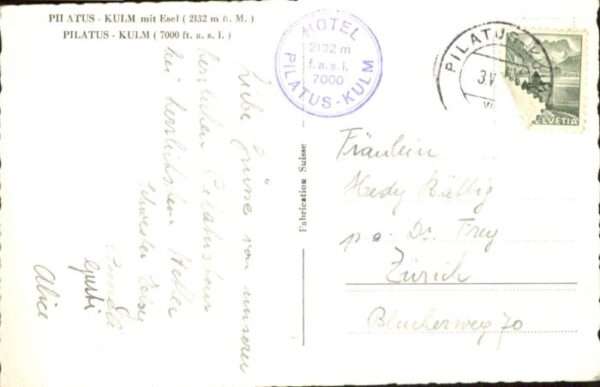 PILATUS - KULM mit Esel ( 2132 m ü. M. )
PILATUS - KULM ( 7000 ft. a. s. l. )
HOTEL
2132 m
f. a. s. l.
7000
PILATUS-KULM
PILATUS
HELVETIA
Fabrication Suisse
Liebe Grüsse von unserer
herrlichen Pilatustour
bei herrlichstem Wetter
Schwester
Gusti
Alice
Fräulein
Hedy Rättig
p. a. Dr. Frey
Zürich
Bleicherweg 70